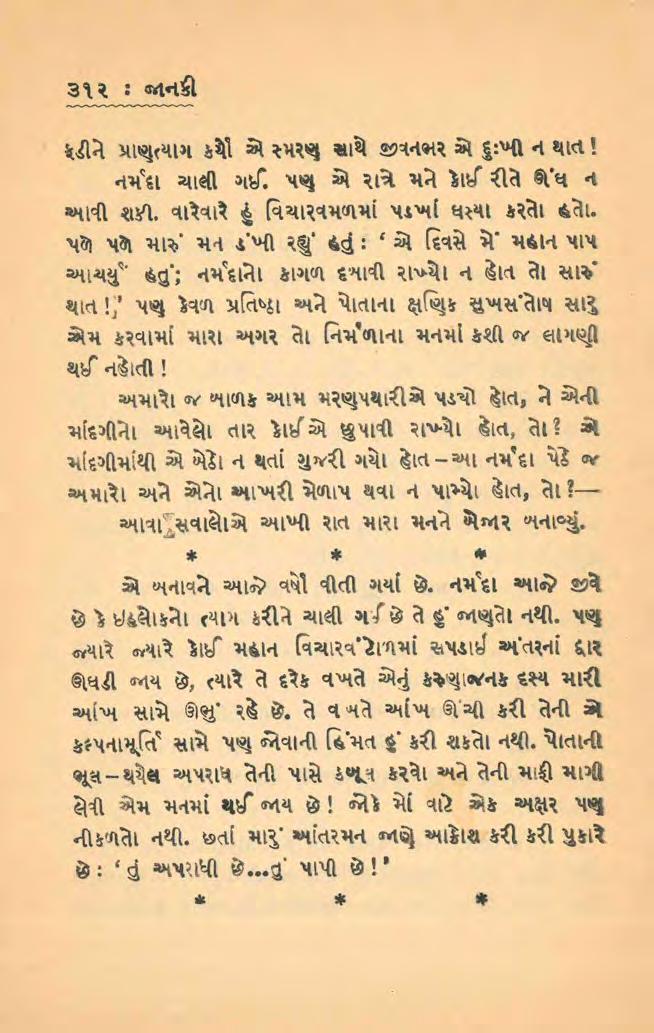 ૩૧૨ : જાનકી
કૂડીને પ્રાણત્યાગ કર્યો એ સ્મરણ સાથે જીવનભર એ દુઃખી ન થાત !
નર્મદા ચાલી ગઈ. પણ એ રાત્રે મને કોઈ રીતે ઊંઘ ન
આવી શકી. વારેવારે હું વિચારવમળમાં પડખાં ઘસ્યા કરતો હતો.
પળે પળે મારું મન ડંખી રહ્યું હતું : ‘ એ દિવસે મેં મહાન પાપ
આચર્યું હતું; નર્મદાનો કાગળ દબાવી રાખ્યો ન હોત તો સારું
થાત !’ પણ કેવળ પ્રતિષ્ઠા અને પોતાના ક્ષણિક સુખસંતોષ સારુ
એમ કરવામાં મારા અગર તો નિર્મળાના મનમાં કશી જ લાગણી
થઈ નહોતી !
અમારો જ બાળક આમ મરણપથારીએ પડ્યો હોત, ને એની
માંદગીનો આવેલો તાર કોઈએ છુપાવી રાખ્યો હોત, તો ? એ
માંદગીમાંથી એ બેઠો ન થતાં ગુજરી ગયો હોત – આ નર્મદા પેઠે જ
અમારો અને એનો આખરી મેળાપ થવા ન પામ્યો હોત, તો ?—
આવા સવાલોએ આખી રાત મારા મનને બેજાર બનાવ્યું.
* * *
એ બનાવને આજે વર્ષો વીતી ગયાં છે. નર્મદા આજે જીવે
છે કે ઇહલોકનો ત્યાગ કરીને ચાલી ગઈ છે તે હું જાણતો નથી. પણ
જ્યારે જ્યારે કોઈ મહાન વિચારવંટોળમાં સપડાઈ અંતરનાં દ્વાર
ઊઘડી જાય છે, ત્યારે તે દરેક વખતે એનું કરુણાજનક દૃશ્ય મારી
આંખ સામે ઊભું રહે છે. તે વખતે આંખ ઊંચી કરી તેની એ
કલ્પનામૂર્તિ સામે પણ જોવાની હિંમત હું કરી શકતો નથી. પોતાની
ભૂલ – થયેલ અપરાધ તેની પાસે કબૂલ કરવો અને તેની માફી માગી
લેવી એમ મનમાં થઈ જાય છે ! જોકે મોં વાટે એક અક્ષર પણ
નીકળતો નથી. છતાં મારું આંતરમન જાણે આક્રોશ કરી કરી પુકારે
છે : ‘ તું અપરાધી છે...તું પાપી છે ! ’
* * *